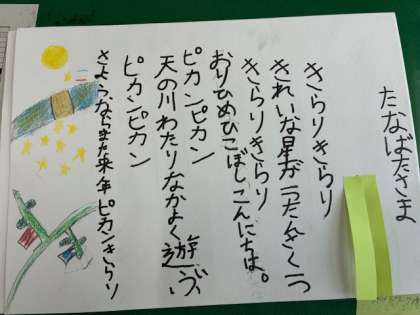 たなばたさま
きらりきらり
きれいな星が一つたんざく一つ
きらりきらり
おりひめひこぼしこんにちは。
ピカンピカン
天の川わたりなかよく遊ぶ
ピカンピカン
さようならまた来年ピカンきらり